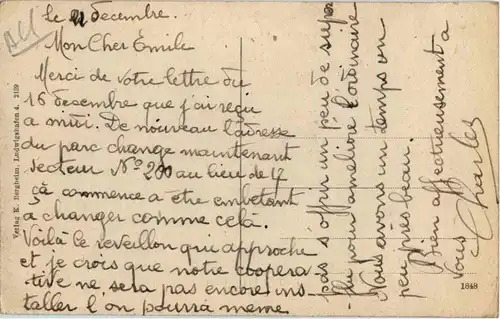 All
Le 21 decembre.
Mon Cher Emile
Merci de votre lettre du
16 decembre que j'ai reçu
a midi. De nouveau l'adresse
du parc change maintenant
secteur No 200 au lieu de 17
ça commence a être embetant
à changer comme celà.
Voilà le reveillon qui approche
et je crois que notre coopera
tive ne sera pas encore ins
taller l'on pourra meme
pas s'offrir un peu de sup
plu pour améliore l'ordinaire
Nous avons un temps un
peu pres beau.
Bien affectueusement a
vous Charles
Verlag K. Bergheim, Ludwigshafen 4. 2129
1848